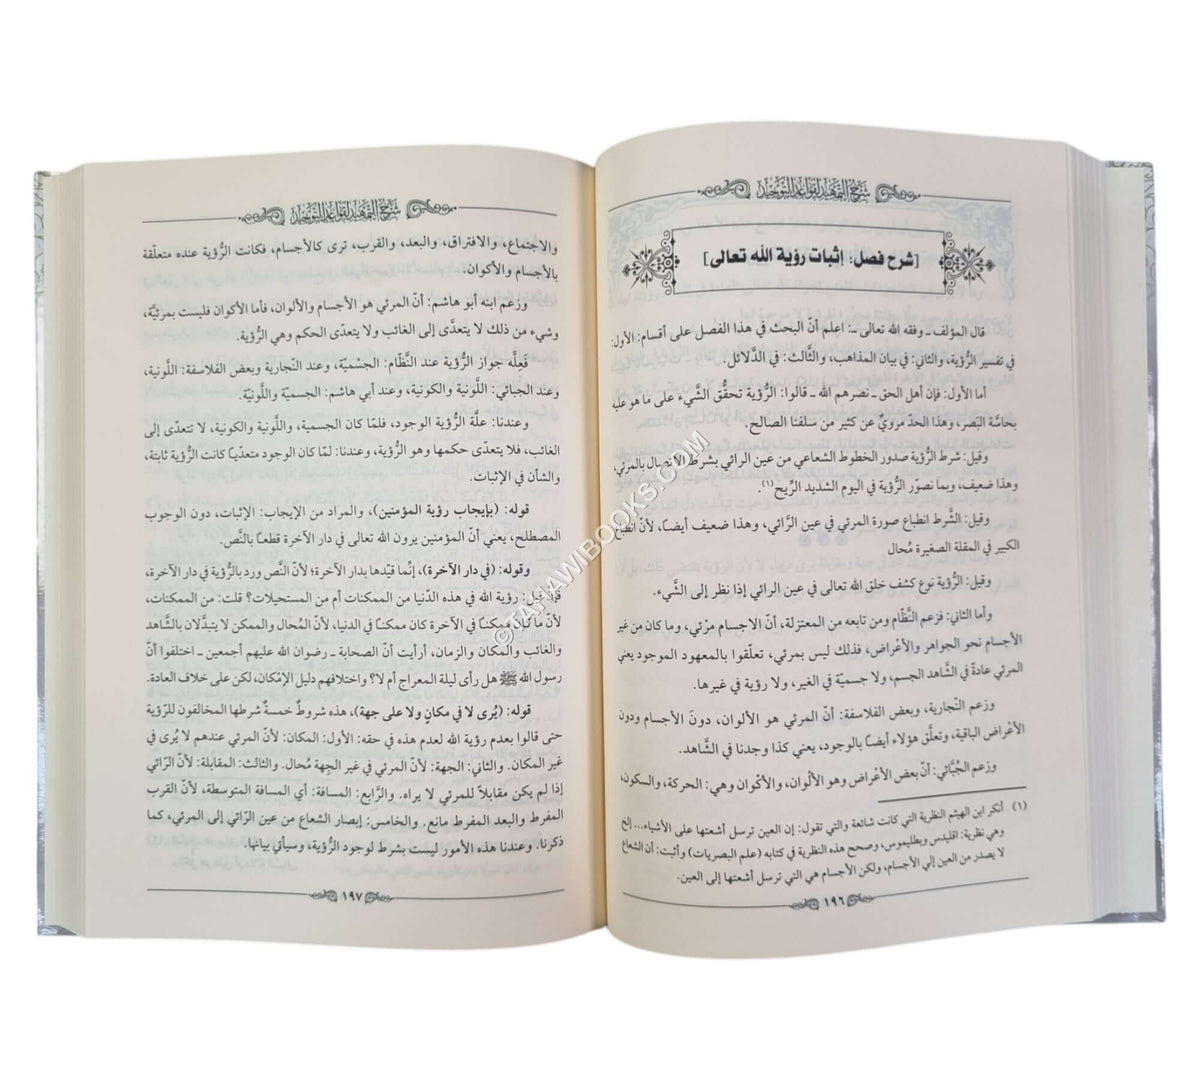 شرح التمهيد لقواعد التوحيد
[شرح فصل: إثبات رؤية الله تعالى]
قال المؤلف ـ وفقه الله تعالى ـ: اعلم أنّ البحث في هذا الفصل على أقسام: الأول:
في تفسير الرُّؤية، والثاني: في بيان المذاهب، والثَّالث: في الدَّلائل.
أما الأول: فإن أهل الحق ـ نصرهم الله ـ قالوا: الرُّؤية تحقُّق الشَّيء على ما هو عليه
بحاسَّة البَصر، وهذا الحدّ مرويٌّ عن كثير من سلفنا الصالح.
وقيل: شرط الرُّؤية صدور الخطوط الشعاعي من عين الرائي بشرط الاتصال بالمرئي،
وهذا ضعيف، وبما نصوّر الرُّؤية في اليوم الشديد الرِّيح(١).
وقيل: الشَّرط انطباع صورة المرئي في عين الرَّائي، وهذا ضعيف أيضًا، لأنّ انطباع
الكبير في المقلة الصغيرة مُحال
وقيل: الرُّؤية نوع كشف خلق الله تعالى في عين الرائي إذا نظر إلى الشَّيء.
وأما الثاني: فزعم النَّظّام ومن تابعه من المعتزلة، أنّ الاجسام مرْئي، وما كان من غير
الأجسام نحو الجواهر والأعْراض، فذلك ليس بمرئي، تعلّقوا بالمعهود الموجود يعني
المرئي عادةً في الشَّاهد الجسم، ولا جسميّة في الغير، ولا رؤية في غيرها.
وزعم النّجارية، وبعض الفلاسفة: أنّ المرئي هو الألوان، دونَ الأجسام ودون
الأعْراض الباقية، وتعلَّق هؤلاء أيضًا بالوجود، يعني كذا وجدنا في الشَّاهد.
وزعم الجُبَّائي: أنّ بعض الأعْراض وهو الألْوان، والأكْوان وهي: الحركة، والسكون،
(١) أنكر ابن الهيثم النظرية التي كانت شائعة والتي تقول: إن العين ترسل أشعتها على الأشياء... إلخ
وهي نظرية: اقليدس وبطليموس، وصحح هذه النظرية في كتابه (علم البصريات) وأثبت: أن الشعاع
لا يصدر من العين إلي الأجسام، ولكن الأجسام هي التي ترسل أشعتها إلى العين.
١٩٦
شرح التمهيد لقواعد التوحيد
والاجتماع، والافتراق، والبعد، والقرب، ترى كالأجسام، فكانت الرُّؤية عنده متعلّقة
بالأجسام والأكوان.
وزعم ابنه أبو هاشم: أنّ المرئي هو الأجسام والألوان، فأما الأكوان فليست بمرئيَّة،
وشيء من ذلك لا يتعدَّى إلى الغائب ولا يتعدّى الحكم وهي الرُّؤية.
فَعِلَّه جواز الرُّؤية عند النَّظّام: الجسْميّة، وعند النّجارية وبعض الفلاسفة: اللَّونية،
وعند الجبائي: اللَّونية والكونية، وعند أبي هاشم: الجسميّة واللَّونيّة.
وعندنا: علَّة الرُّؤية الوجود، فلمّا كان الجسمية، واللَّونية والكونية، لا تتعدى إلى
الغائب، فلا يتعدّى حكمها وهو الرُّؤية، وعندنا: لمّا كان الوجود متعديًا كانت الرُّؤية ثابتة،
والشأن في الإثبات.
قوله: (بإيجاب رؤية المؤمنين)، والمراد من الإيجاب: الإثبات، دون الوجوب
المصطلح، يعني أنّ المؤمنين يرون الله تعالى في دار الآخرة قطعًا بالنَّص.
وقوله: (في دار الآخرة)، إنَّما قيّدها بدار الآخرة؛ لأنّ النَّص ورد بالرُّؤية في دار الآخرة،
فإن قيل: رؤية الله في هذه الدّنيا من الممكنات أم من المستحيلات؟ قلت: من الممكنات،
لأنّ ما كان ممكنًا في الآخرة كان ممكنًا في الدنيا، لأنّ المُحال والممكن لا يتبدَّلان بالشَّاهد
والغائب والمكان والزمان، أرأيت أنّ الصحابة ـ رضوان الله عليهم أجمعين ـ اختلفوا أنّ
رسول الله ﷺ هل رأى ليلة المعراج أم لا؟ واختلافهم دليل الإمْكان، لكن على خلاف العادة.
قوله: (يُرى لا في مكانٍ ولا على جهة)، هذه شروطٌ خمسةٌ شرطها المخالفون للرّؤية
حتى قالوا بعدم رؤية الله لعدم هذه في حقه: الأول: المكان: لأنّ المرئي عندهم لا يُرى في
غير المكان. والثاني: الجهة: لأنّ المرئي في غير الجِهة مُحال. والثالث: المقابلة: لأنّ الرّائي
إذا لم يكن مقابلًا للمرئي لا يراه. والرَّابع: المسافة: أي المسافة المتوسطة، لأنّ القرب
المفرط والبعد المفرط مانع. والخامس: إبصار الشعاع من عين الرّائي إلى المرئي، كما
ذكرنا. وعندنا هذه الأمور ليست بشرط لوجود الرُّؤية، وسيأتي بيانُها.
١٩٧
©TAHAWIBOOKS.COM